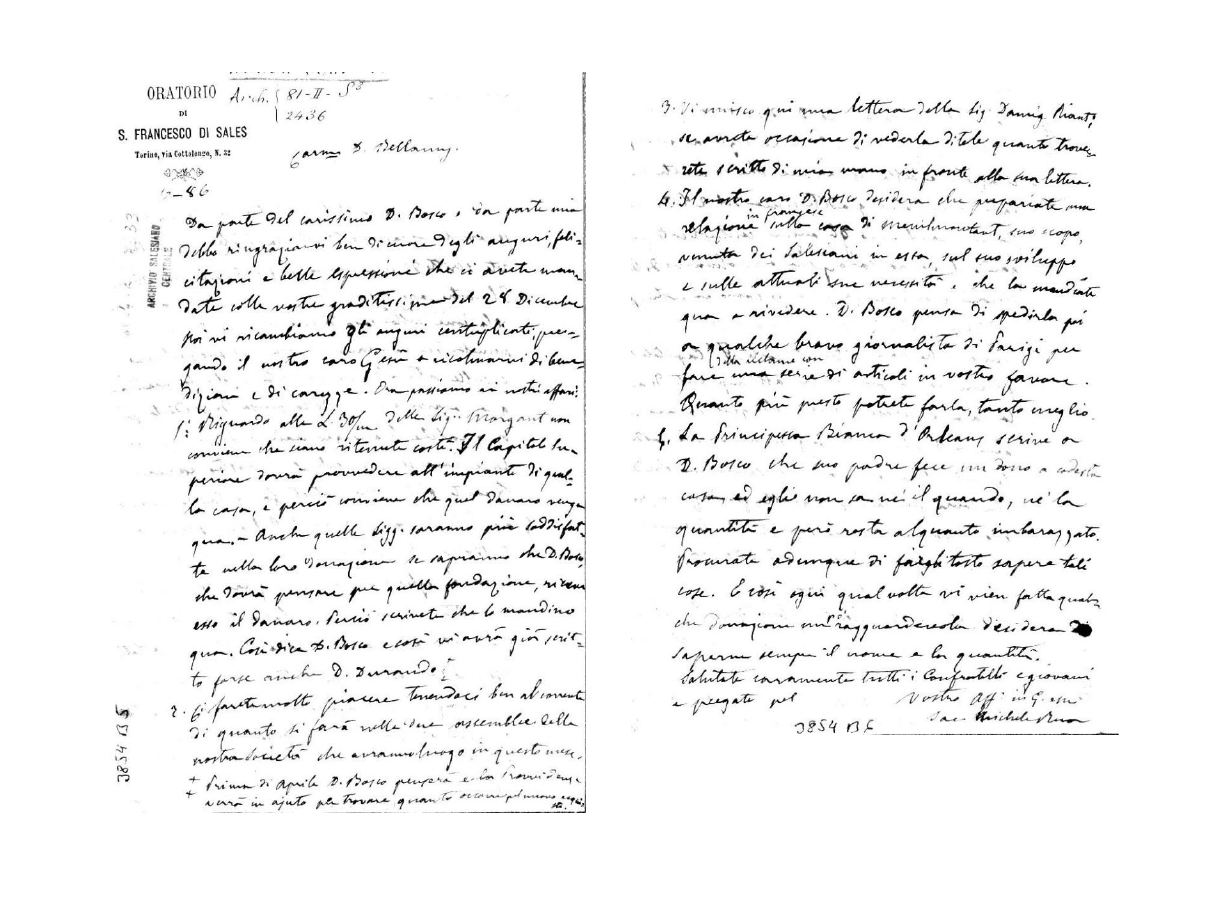 ORATORIO
DI
S. FRANCESCO DI SALES
Torino, via Cottolengo, N. 32
Arch. 81-II-S
2436
Carmo D. Bellamy.
-86
ARCHIVIO SALESIANO
CENTRALE
Da parte del carissimo D. Bosco e da parte mia
debbo ringraziarvi ben di cuore degli auguri, feli-
citazioni e belle espressioni che ci avete man-
date colle vostre graditissime del 28 Dicembre
Noi vi ricambiamo gli auguri centuplicati, pre-
gando il nostro caro Gesù a ricolmarvi di bene-
dizioni e di carezze. Ora passiamo ai nostri affari.
1: Riguardo alle L 30/m delle Sig. Morgant non
conviene che siano ritenute costì. Il Capitolo Su-
periore dovrà provvedere all'impianto di quel-
la casa, e perciò conviene che quel danaro venga
qua. - Anche quelle Sigg. saranno più soddisfat-
te nella loro donazione se sapranno che D. Bosco,
che dovrà pensare per quella fondazione, riceve
esso il danaro. Perciò scrivete che lo mandino
qua. Così dice D. Bosco e così vi avrà già scrit-
to forse anche D. Durando.
2. Ci farete molto piacere tenendoci ben al corrente
di quanto si farà nelle due assemblee della
nostra Società che avranno luogo in questo mese.
+ Prima di Aprile D. Bosco penserà e la Provvidenza
+ verrà in ajuto per trovare quanto occorre pel nuovo
3854 B5
3. Vi unisco qui una lettera della Sig. Damig.
se avrete occasione di vederla ditele quanto trove-
rete scritto di mia mano in fronte alla sua lettera.
4. Il nostro caro D. Bosco desidera che prepariate una
in francese
relazione sulla casa di Menilmontant, suo scopo,
venuta dei Salesiani in essa, sul suo sviluppo
e sulle attuali sue necessità, e che la mandiate
qua a rivedere. D. Bosco pensa di spedirla poi
a qualche bravo giornalista di Parigi per
fare una serie di articoli in vostro favore.
Quanto più presto potrete farla, tanto meglio
5. La Principessa Bianca d'Orleans scrive a
D. Bosco che suo padre fece un dono a codesta
casa, ed egli non sa nè il quando, nè la
quantità e però resta alquanto imbarazzato.
Procurate adunque di farglitosto sapere tali
cose. E così ogni qual volta vi vien fatta qual-
che donazione un pò ragguardevole desidera
saperne sempre il nome e la quantità.
Salutate caramente tutti i Confratelli e giovani
e pregate pel Vostro Aff in G.
Sac. Michele Rua
3854 B6